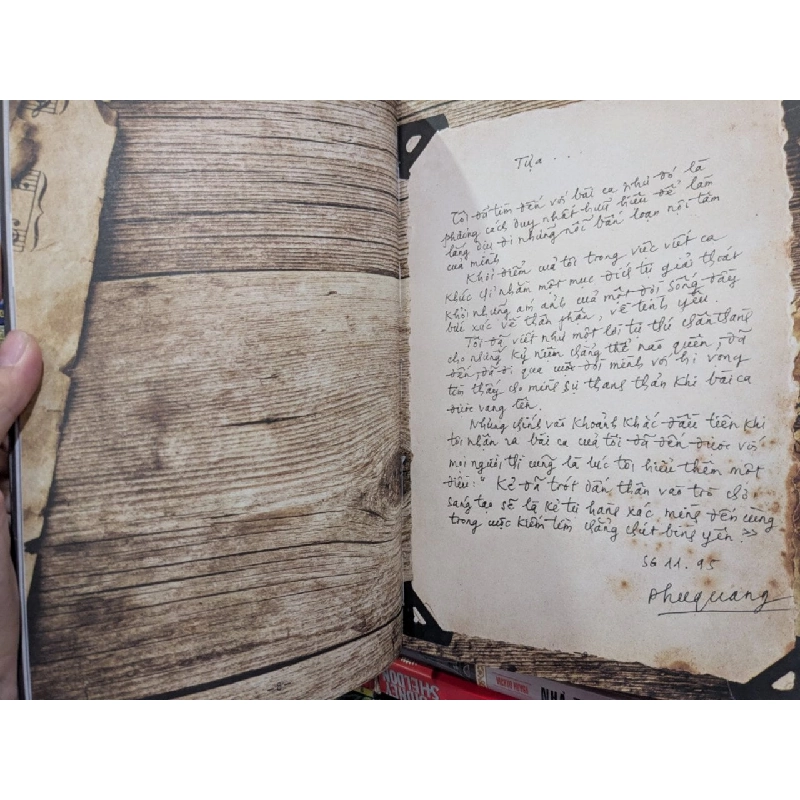 Tựa . . .
Tôi đã tìm đến với bài ca như đó là
phương cách duy nhất hữu hiệu để làm
lắng dịu đi những nỗi bấn loạn nội tâm
của mình
Khởi điểm của tôi trong việc viết ca
khúc chỉ nhằm một mục đích tự giải thoát
khỏi những ám ảnh của một đời sống đầy
bức xúc về thân phận, về tình yêu.
Tôi đã viết như một lời tự thú chân thành
cho những kỷ niệm chẳng thể nào quên, đã
đến, đã đi qua cuộc đời mình với hi vọng
tìm thấy cho mình sự thanh thản khi bài ca
được vang lên.
Nhưng chính vào khoảnh khắc đầu tiên khi
tôi nhận ra bài ca của tôi đã đến được với
mọi người, thì cũng là lúc tôi hiểu thêm một
điều: " Kẻ đã trót dấn thân vào trò chơi
sáng tạo sẽ là kẻ tự hành xác mình đến cùng
trong cuộc kiếm tìm chẳng chút bình yên. >>
SG 11. 95
Phuquang
SHELDON
NHÀ